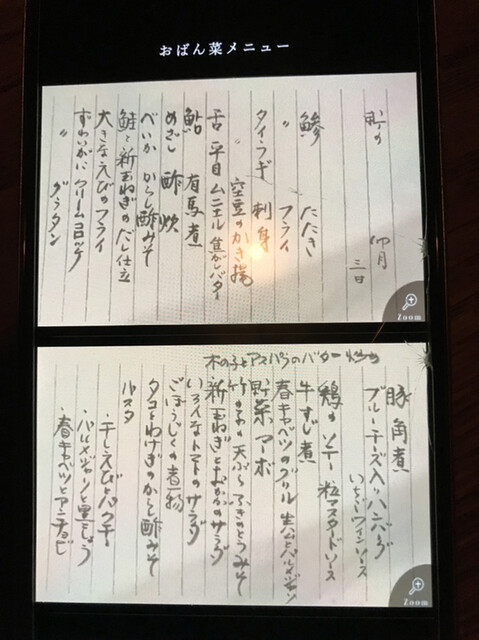 おばん菜メニュー
四月
三日
鯵 たたき
〃 フライ
タイラギ 刺身
〃 空豆のかき揚
舌平目 ムニエル 焦がしバター
鮎 有馬煮
めざし 酢炊
べいか からし酢みそ
鮭と新玉ねぎのだし仕立
大きなえびのフライ
ずわいがに クリームコロッケ
〃 グラタン
Zoom
木の子とアスパラのバター炒め
豚角煮
ブルーチーズ入りハンバーグ
いちごワインソース
鶏のソテー 粒マスタードソース
牛すじ煮
春キャベツのグリル 生ハムとパルメジャン
野菜マーボ
竹の子の天ぷら ふきのとうみそ
新玉ねぎとおかかのサラダ
いろんなトマトのサラダ
ごぼうじくの煮物
タコとわけぎのからし酢みそ
パスタ
・干しえびとパクチー
・パルメジャーノと黒こしょう
・春キャベツとアンチョビ
Zoom